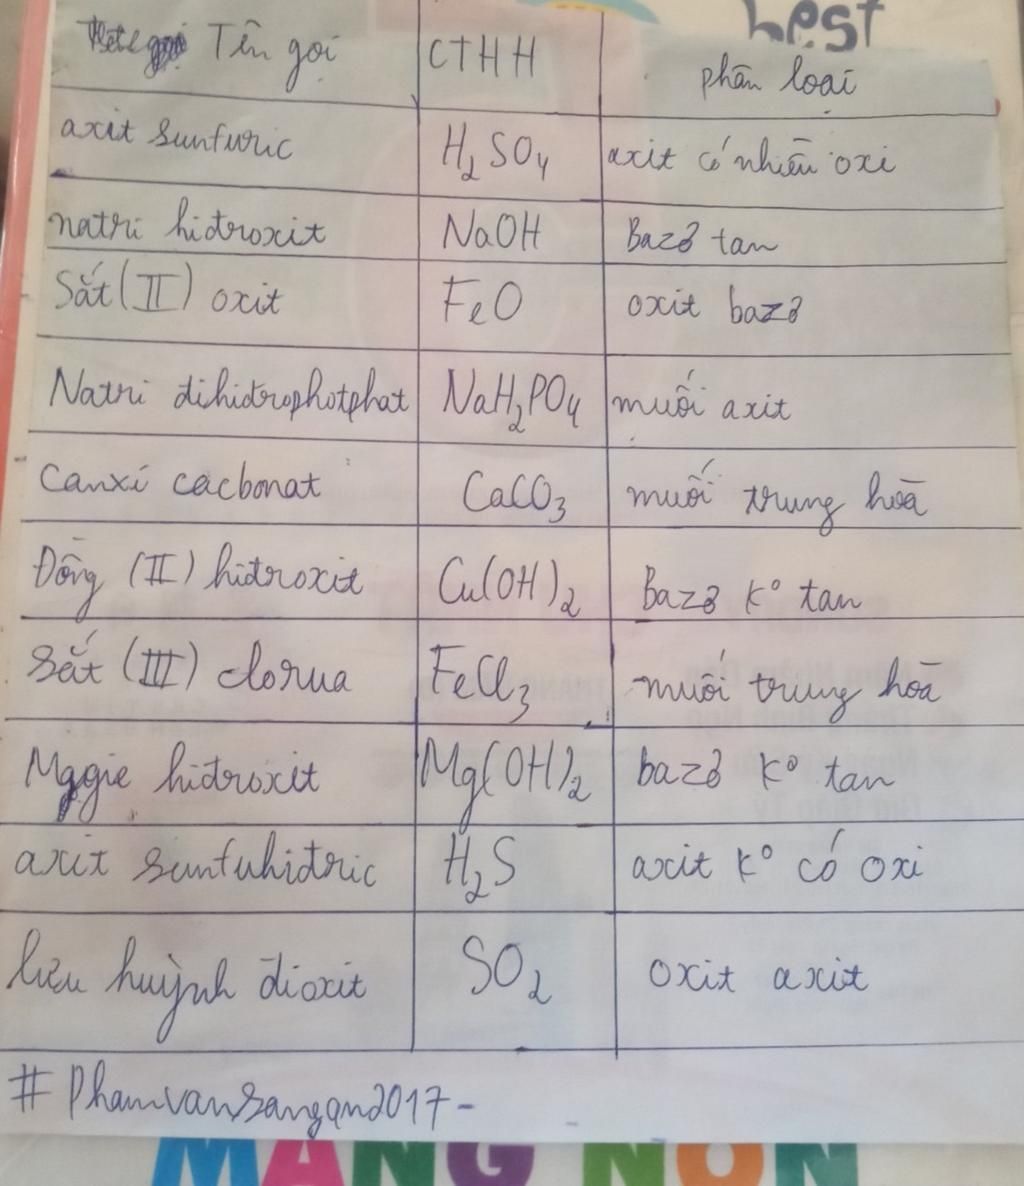 best
Tên gọi CTHH phân loại
axit sunfuric H2SO4 axit có nhiều oxi
natri hiđroxit NaOH Bazơ tan
Sắt (II) oxit FeO oxit bazơ
Natri đihiđrophotphat NaH2PO4 muối axit
Canxi cacbonat CaCO3 muối trung hoà
Đồng (II) hiđroxit Cu(OH)2 Bazơ K° tan
Sắt (III) clorua FeCl3 muối trung hoà
Mggie hiđroxit Mg(OH)2 bazơ K° tan
axit sunfuhiđric H2S axit K° có oxi
lưu huỳnh đioxit SO2 oxit axit
#Phamvansangqn2017-
MĂNG NON